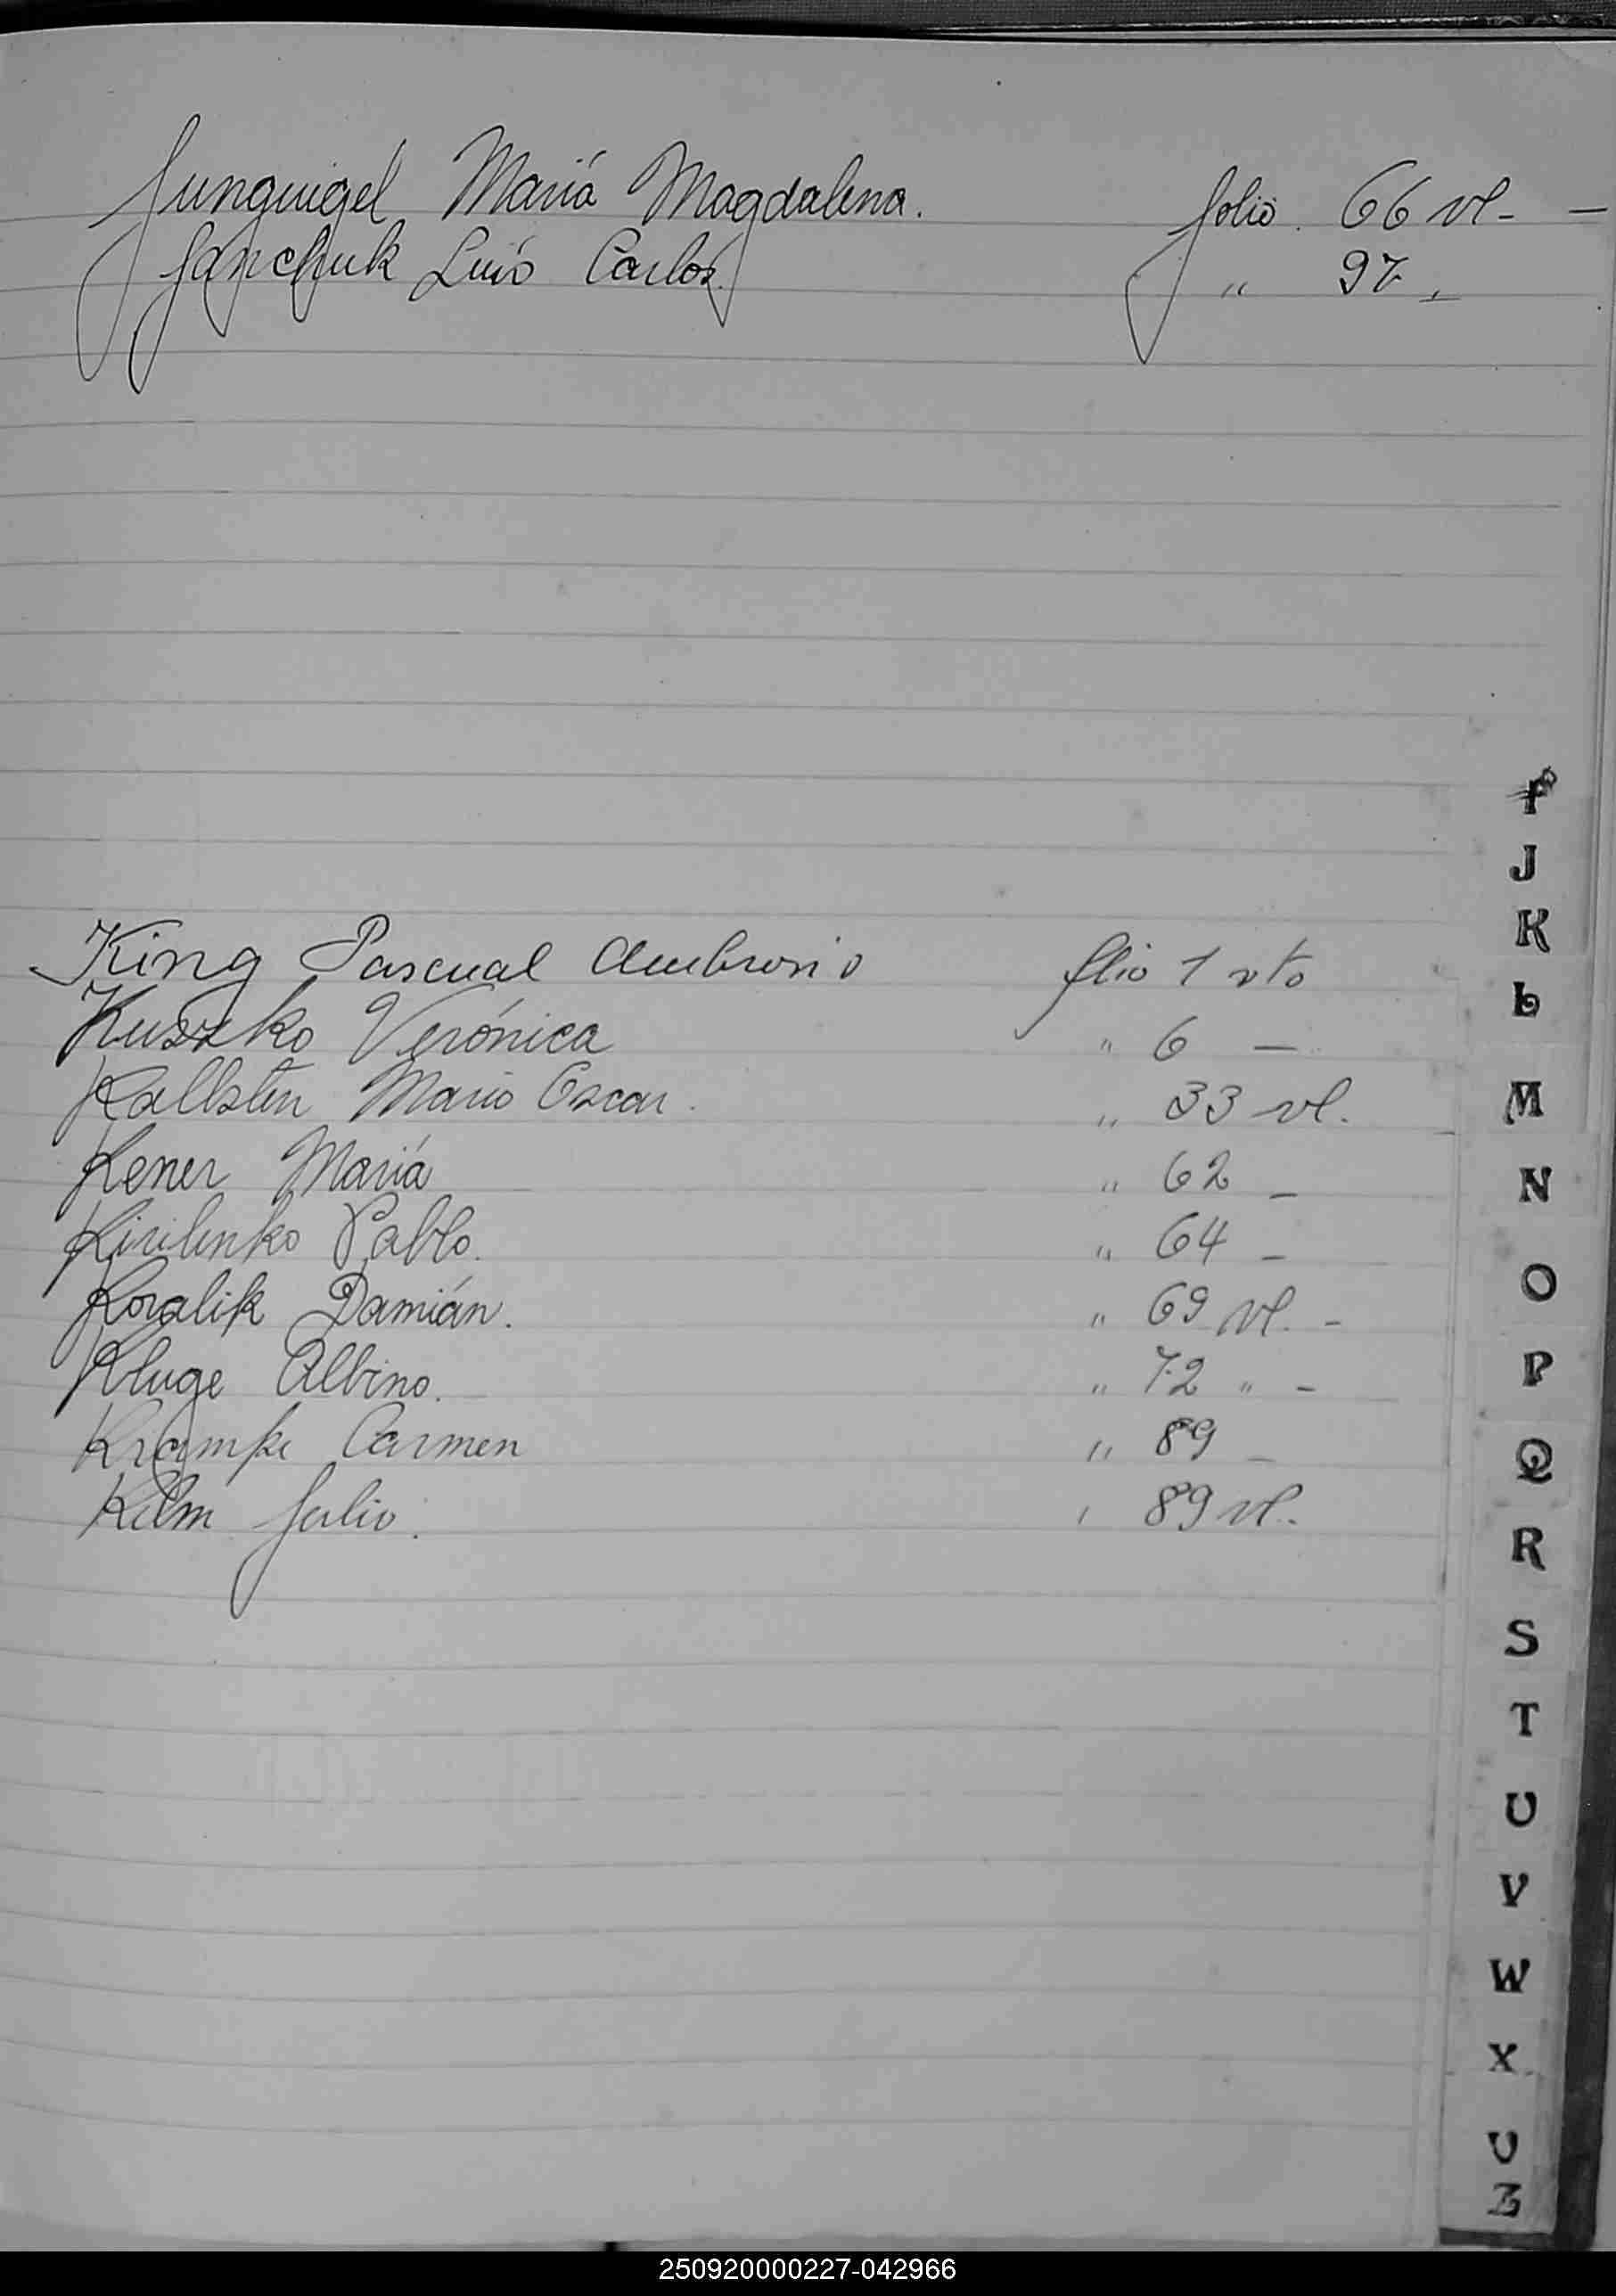 Junguigel María Magdalena. folio. 66 vt. -
Janchuk Luis Carlos. " 97 -
King Pascual Ambrosio folio 1 vto
Kuszko Verónica " 6 -
Kallsten Mario Oscar. " 33 vt.
Kener María " 62 -
Kirilenko Pablo. " 64 -
Koralik Damián. " 69 vt. -
Kluge Albino. " 72 " -
Krampe Carmen " 89 -
Julio. " 89 vt.
J
K
L
M
N
O
P
Q
R
S
T
U
V
W
X
250920000227-042966